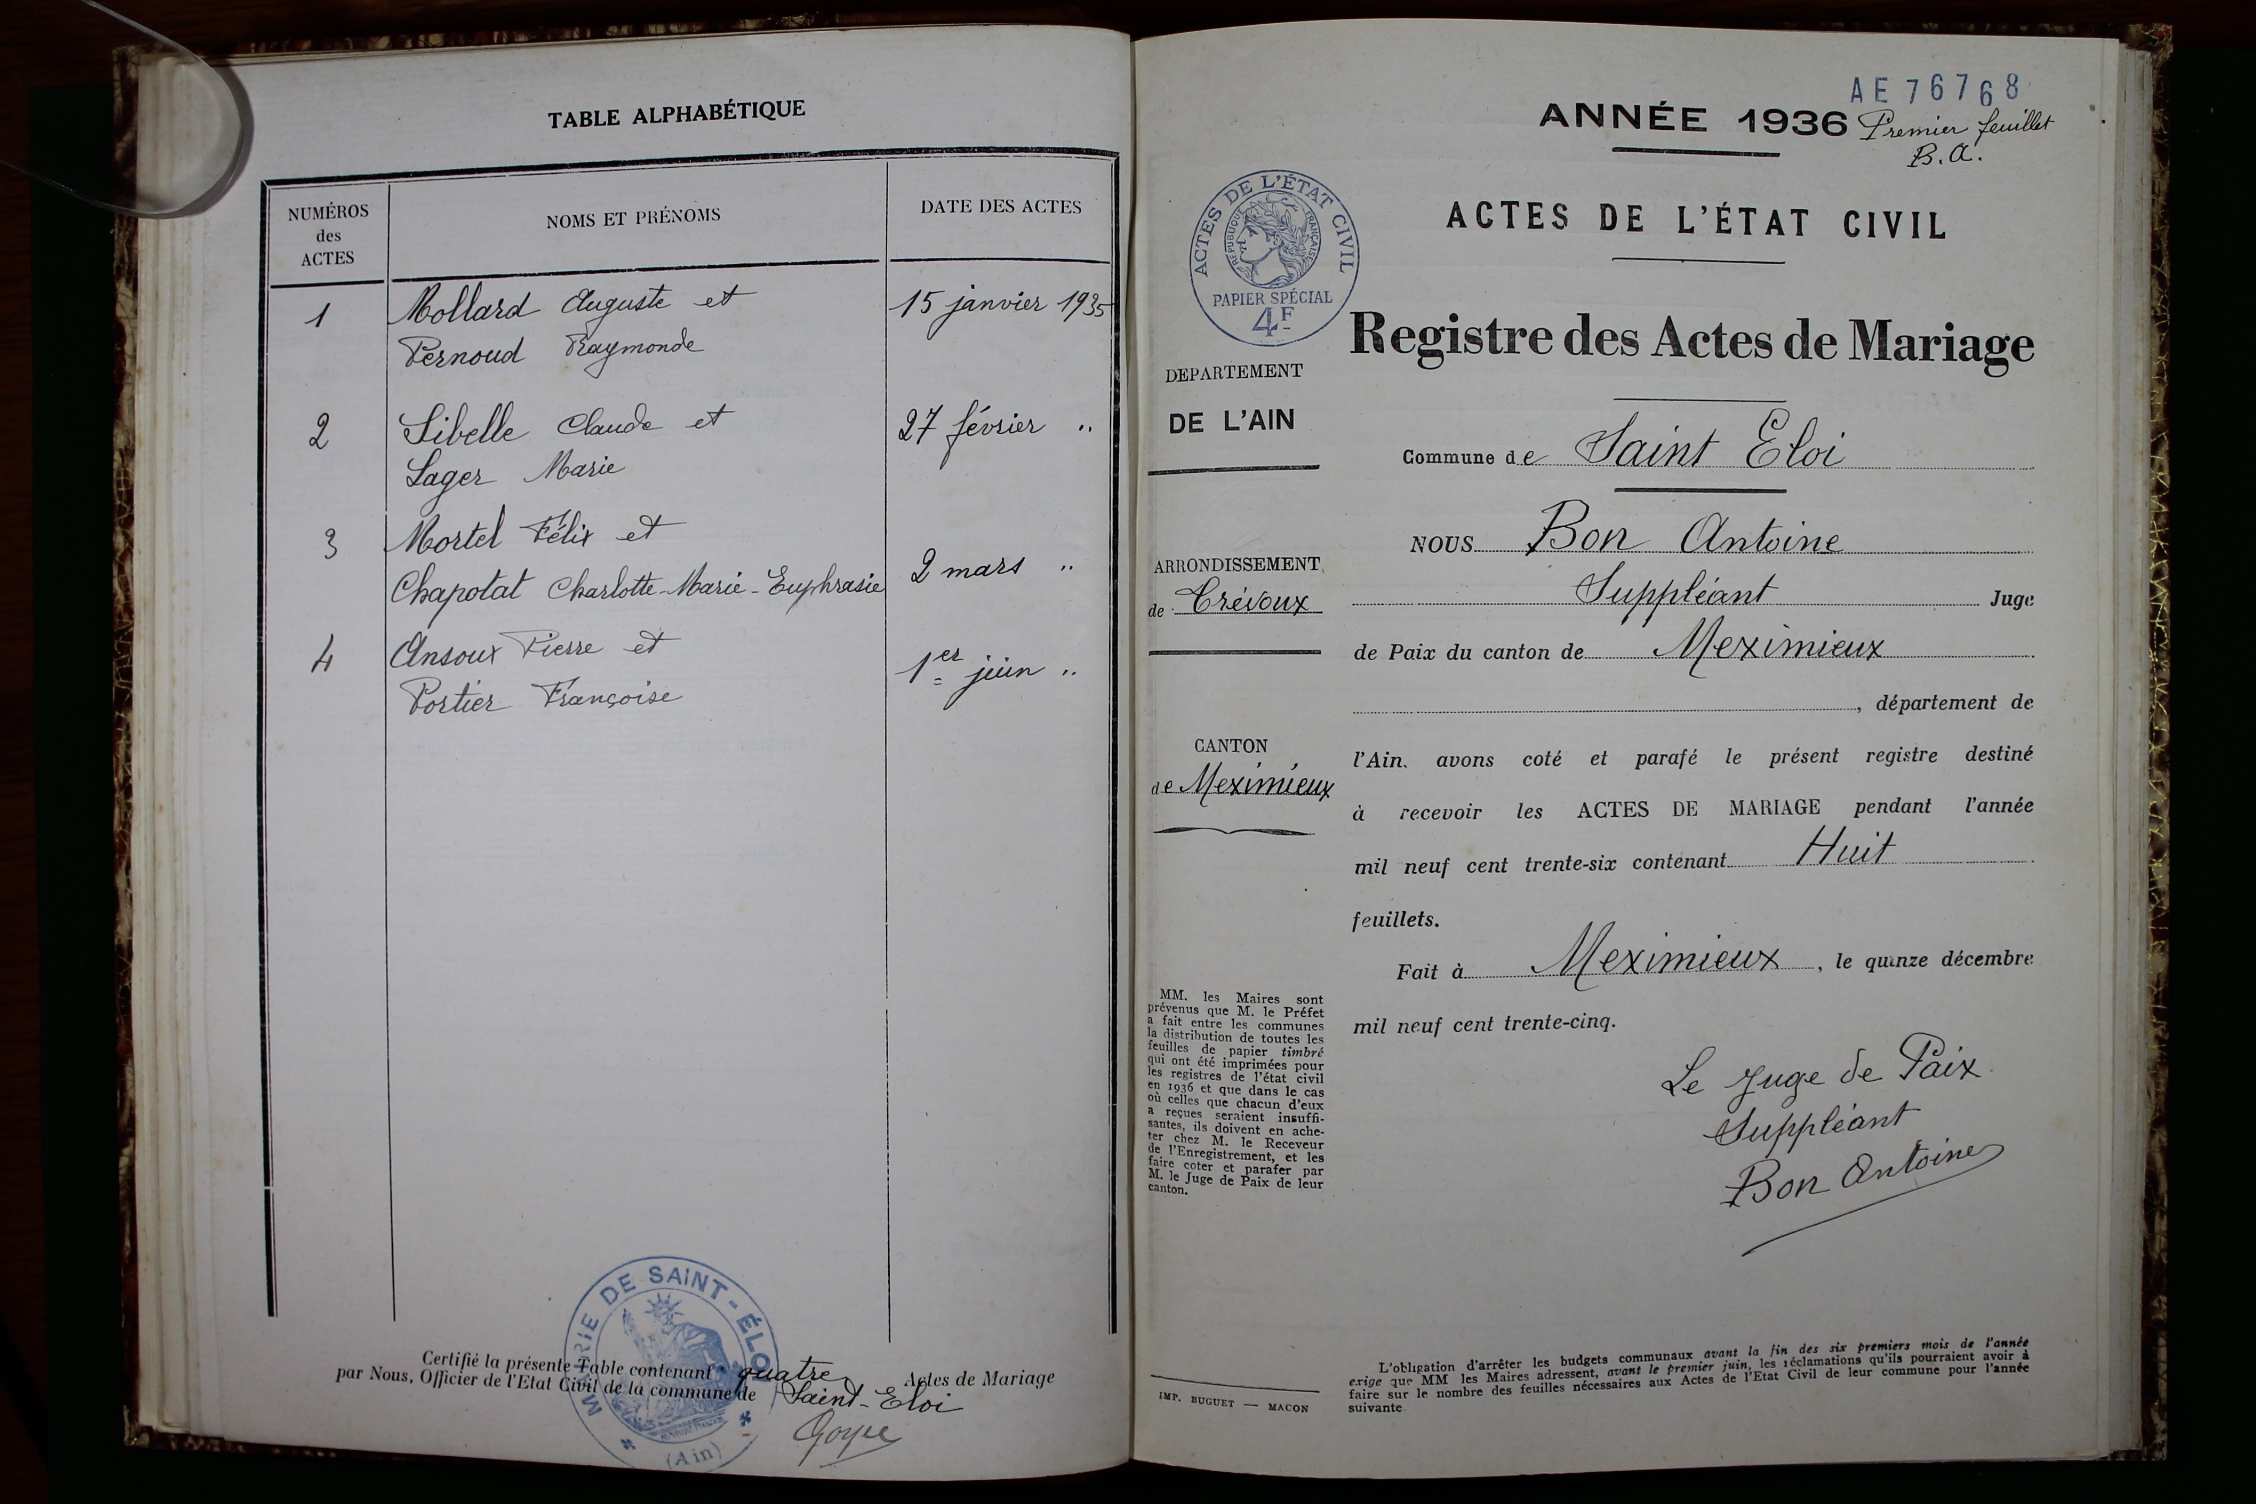 TABLE ALPHABÉTIQUE
NUMÉROS
des
ACTES
NOMS ET PRÉNOMS
DATE DES ACTES
1 Mollard Auguste et 15 janvier 1935
Pernoud Raymonde
2 Sibelle Claude et 27 février "
Sager Marie
3 Mortel Félix et
Chapotat Charlotte-Marie-Euphrasie 2 mars "
4 Ansoux Pierre et 1er juin "
Portier Françoise
MAIRIE DE SAINT-ÉLOI
(Ain)
Certifié la présente Table contenant quatre Actes de Mariage
par Nous, Officier de l'Etat Civil de la commune de Saint-Eloi
Goyse
AE 76768
ANNÉE 1936 Premier feuillet
B.A.
ACTES DE L'ÉTAT CIVIL
RÉPUBLIQUE FRANÇAISE
PAPIER SPÉCIAL
4F
ACTES DE L'ÉTAT CIVIL
Registre des Actes de Mariage
DEPARTEMENT
DE L'AIN
Commune de Saint Eloi
ARRONDISSEMENT
de Trévoux
CANTON
de Meximieux
NOUS Bon Antoine
Suppléant Juge
de Paix du canton de Meximieux
, département de
l'Ain. avons coté et parafé le présent registre destiné
à recevoir les ACTES DE MARIAGE pendant l'année
mil neuf cent trente-six contenant Huit
feuillets.
Fait à Meximieux, le quinze décembre
mil neuf cent trente-cinq.
Le Juge de Paix
Suppléant
Bon Antoine
MM. les Maires sont
prévenus que M. le Préfet
a fait entre les communes
la distribution de toutes les
feuilles de papier timbré
qui ont été imprimées pour
les registres de l'état civil
en 1936 et que dans le cas
où celles que chacun d'eux
a reçues seraient insuffi-
santes, ils doivent en ache-
ter chez M. le Receveur
de l'Enregistrement, et les
faire coter et parafer par
M. le Juge de Paix de leur
canton.
IMP. BUGUET — MACON
L'obligation d'arrêter les budgets communaux avant la fin des six premiers mois de l'année
exige que MM les Maires adressent, avant le premier juin, les réclamations qu'ils pourraient avoir à
faire sur le nombre des feuilles nécessaires aux Actes de l'Etat Civil de leur commune pour l'année
suivante